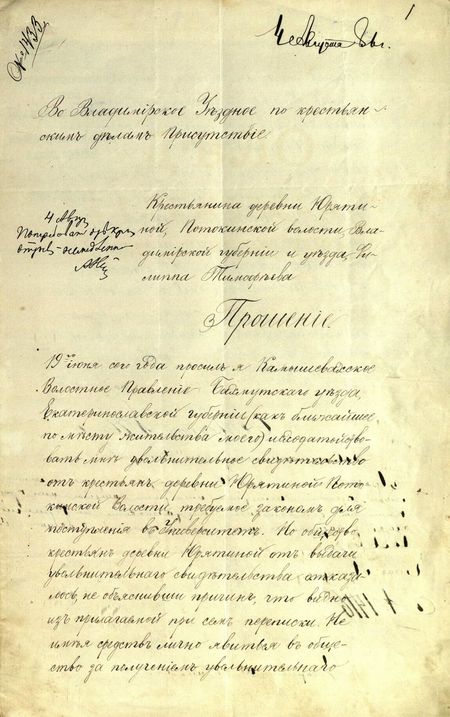 № 1433
4 Августа 86 г.
1
Во Владимірское Уѣздное по крестьян-
скимъ дѣламъ Присутствіе
Крестьянина деревни Юряти-
ной, Потокинской волости, Вла-
димірской губерніи и уѣзда, Фи-
липпа Тимофѣева
4 Авг.
Прошеніе.
19го Іюня сего года просилъ я Камышевахское
Волостное Правленіе Бахмутскаго уѣзда,
Екатеринославской губерніи (какъ ближайшее
по мѣсту жительства моего) исходатайство-
вать мнѣ увольнительное свидѣтельство
отъ крестьянъ деревни Юрятиной Пото-
кинской Волости, требуемое закономъ для
поступленія въ Университетъ. Но общество
крестьянъ деревни Юрятиной отъ выдачи
увольнительнаго свидѣтельства отказа-
лось, не объяснивши причинъ, что видно
изъ прилагаемой при семъ переписки. Не
имѣя средствъ лично явиться въ обще-
ство за полученіемъ увольнительнаго